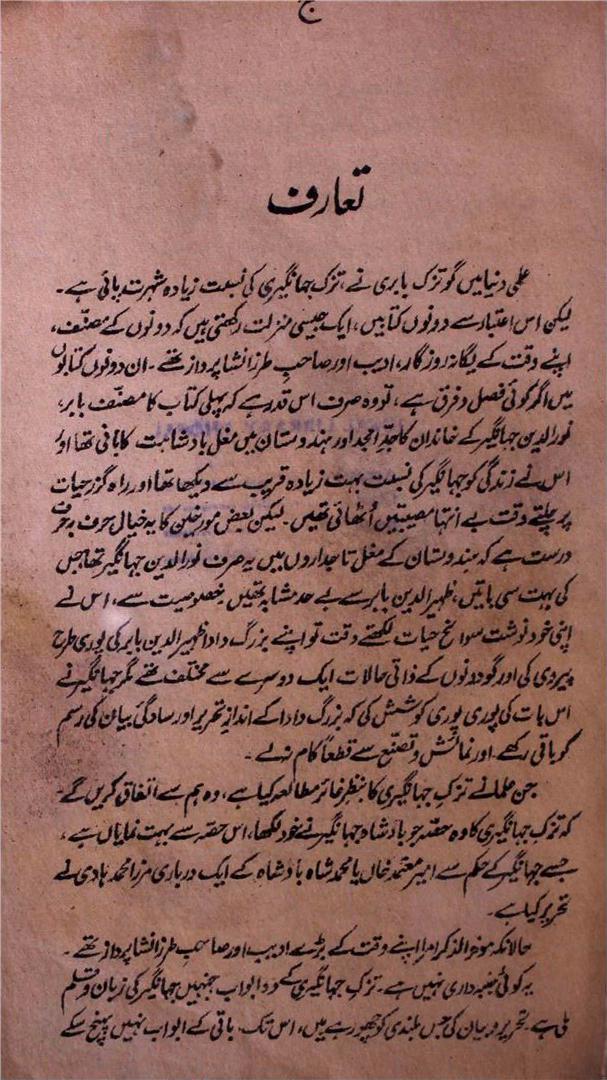 ج
تعارف
علمی دنیا میں گو تزک بابری نے، تزک جہانگیری کی نسبت زیادہ شہرت پائی ہے۔
لیکن اس اعتبار سے دونوں کتابیں، ایک جیسی منزلت رکھتی ہیں کہ دونوں کے مصنف،
اپنے وقت کے یگانۂ روزگار، ادیب اور صاحبِ طرز انشا پرداز تھے۔ ان دونوں کتابوں
میں اگر کوئی فصل و فرق ہے، تو وہ صرف اس قدر ہے کہ پہلی کتاب کا مصنف بابر،
نورالدین جہانگیر کے خاندان کا جدِّ امجد اور ہندوستان میں مغل بادشاہت کا بانی تھا اور
اس نے زندگی کو جہانگیر کی نسبت بہت زیادہ قریب سے دیکھا تھا اور راہ گزر حیات
پر چلتے وقت بے انتہا مصیبتیں اُٹھائی تھیں۔ لیکن بعض مورخین کا یہ خیال حرف بہ حرف
درست ہے کہ ہندوستان کے مغل تاجداروں میں یہ صرف نورالدین جہانگیر تھا جس
کی بہت سی باتیں، ظہیرالدین بابر سے بے حد مشابہ تھیں خصوصیت سے، اس نے
اپنی خود نوشت سوانح حیات لکھتے وقت تو اپنے بزرگ دادا ظہیرالدین بابر کی پوری طرح
پیروی کی اور گو دونوں کے ذاتی حالات ایک دوسرے سے مختلف تھے مگر جہانگیر نے
اس بات کی پوری پوری کوشش کی کہ بزرگ دادا کے اندازِ تحریر اور سادگیِ بیان کی رسم
کو باقی رکھے۔ اور نمائش و تصنّع سے قطعاً کام نہ لے۔
جن علما نے تزک جہانگیری کا بنظرِ غائر مطالعہ کیا ہے، وہ ہم سے اتفاق کریں گے۔
کہ تزک جہانگیری کا وہ حصّہ جو بادشاہ جہانگیر نے خود لکھا، اس حصّہ سے بہت نمایاں ہے،
جسے جہانگیر کے حکم سے امیر معتمد خاں یا محمد شاہ بادشاہ کے ایک درباری مرزا محمد ہادی نے
تحریر کیا ہے۔
حالانکہ موخرالذکر امرا اپنے وقت کے بڑے ادیب اور صاحبِ طرز انشا پرداز تھے۔
یہ کوئی جنبہ داری نہیں ہے۔ تزک جہانگیری کے وہ ابواب جنہیں جہانگیر کی زبان و قلم
ملی ہے۔ تحریر و بیان کی جس بلندی کو چھو رہے ہیں، اس تک باقی کے ابواب نہیں پہنچ سکے